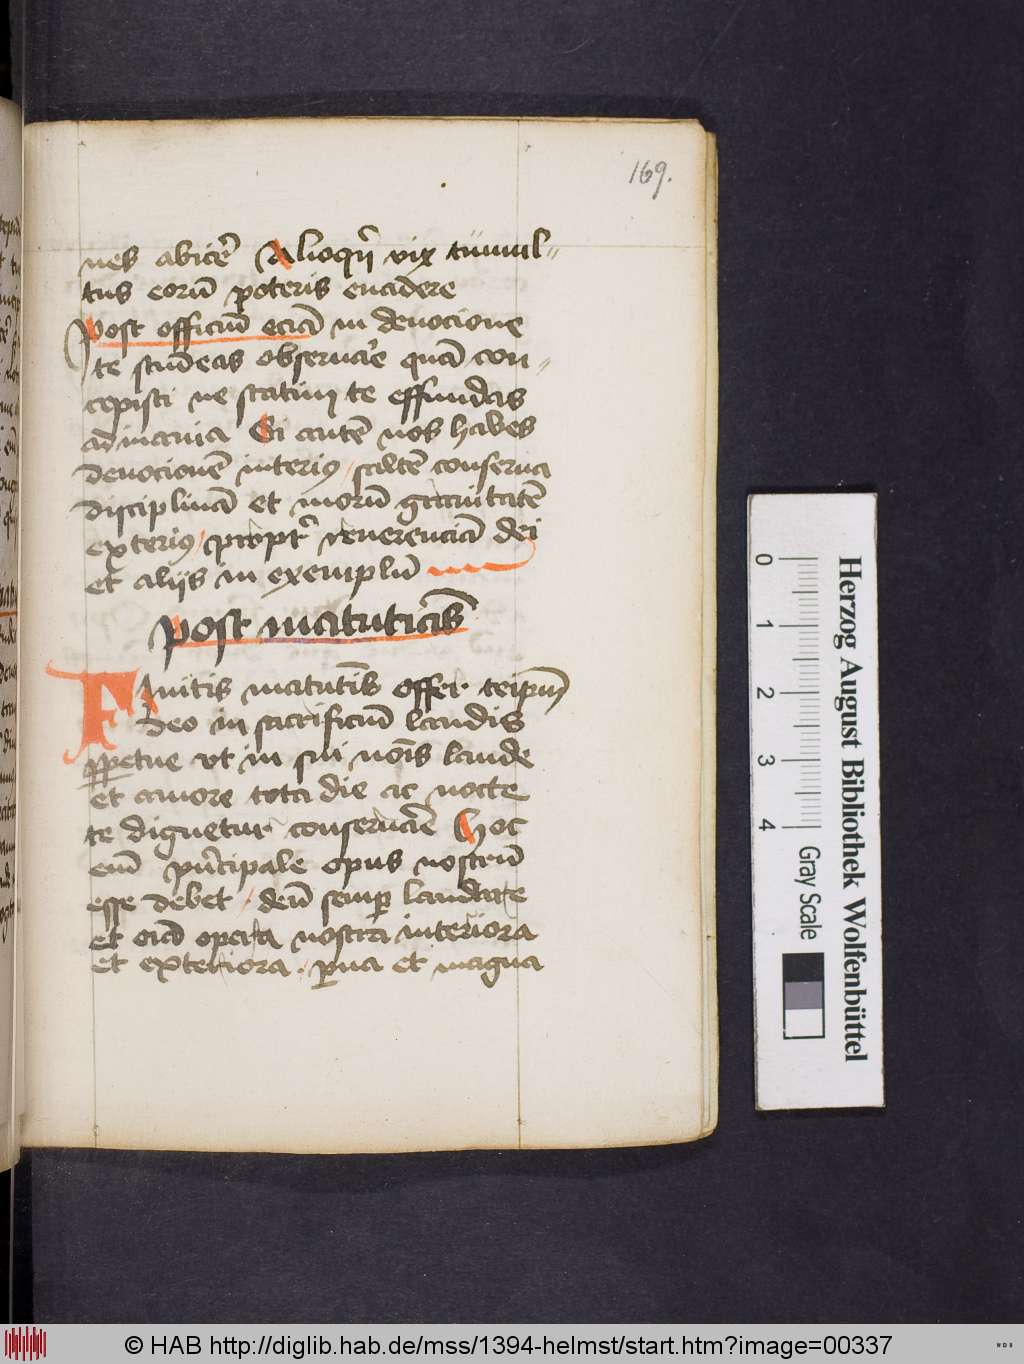 169.
nes abicē Alioqn̄ vix tumul=
tus eorū poteris euadere
Post officiū eciā in deuocione
te studeas obseruāe quā con=
cepisti ne statim te effundas
ad inania Si autē nos habes
deuocionē interiꝰ / saltē conserua
disciplinā et morū grauitatē
exteriꝰ / propt̄ reuerenciā dei
et alijs in exemplū
post matutīas
Finitis matutīs offer teipm̄
deo in sacrificiū laudis
ꝑpetue vt in sui noīs laude
et amore tota die ac nocte
te dignetur conseruāe Hoc
em̄ pn̄cipale opus nostrū
esse debet / deū semꝑ laudare
et oīa opera nostra interiora
et exteriora . ꝑua et magna
0 1 2 3 4
Gray Scale
Herzog August Bibliothek Wolfenbüttel
© HAB http://diglib.hab.de/mss/1394-helmst/start.htm?image=00337